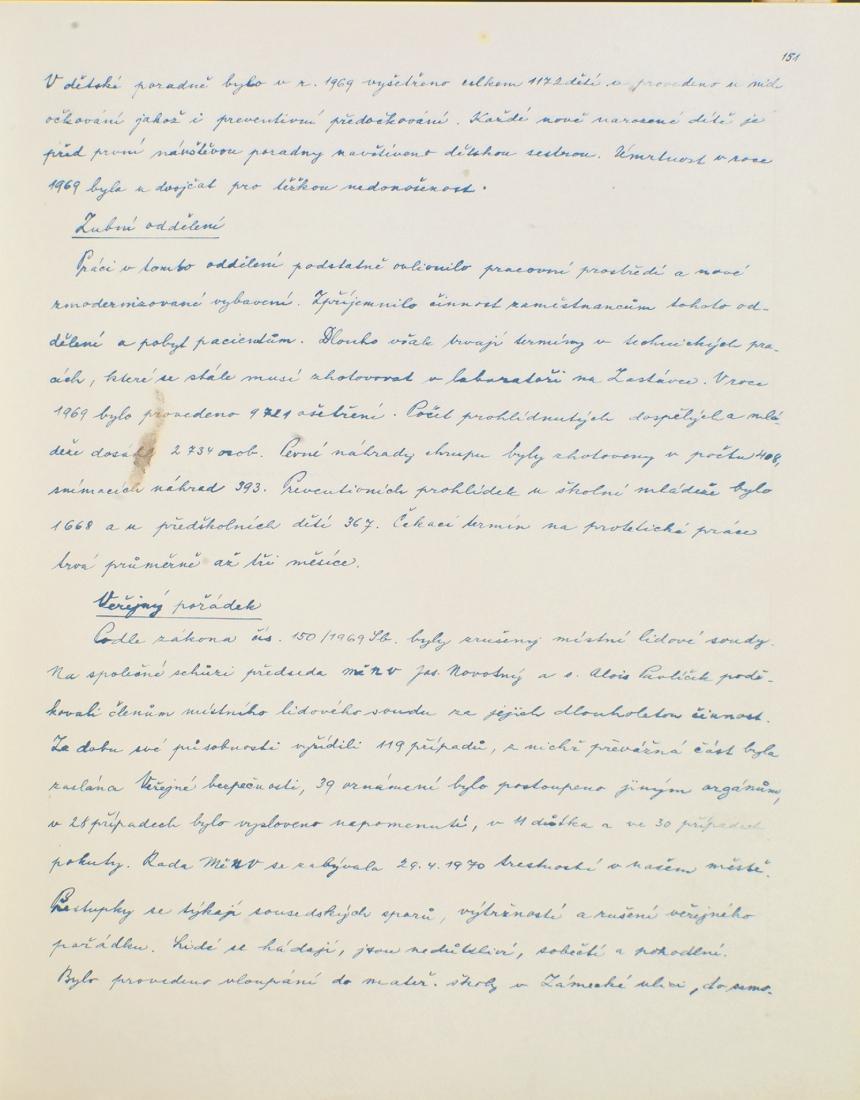 151
V dětské poradně bylo v r. 1969 vyšetřeno celkem 1172 dětí a provedeno u nich
očkování jakož i preventivní předočkování. Každé nově narozené dítě je
před první návštěvou poradny navštíveno dětskou sestrou. Úmrtnost v roce
1969 byla u dvojčat pro těžkou nedonošenost.
Zubní oddělení
Práci v tomto oddělení podstatně ovlivnilo pracovní prostředí a nové
zmodernizované vybavení. Zpříjemnilo činnost zaměstnancům tohoto od-
dělení a pobyt pacientům. Dlouho však trvají termíny v technických pra-
cích, které se stále musí zhotovovat v laboratoři na Zastávce. V roce
1969 bylo provedeno 9721 ošetření. Počet prohlídnutých dospělých a mlá-
deže dosáhl 2734 osob. Pevné náhrady chrupu byly zhotoveny v počtu 408,
snímacích náhrad 393. Preventivních prohlídek u školní mládeže bylo
1668 a u předškolních dětí 367. Čekací termín na protetické práce
trvá průměrně až tři měsíce.
Veřejný pořádek
Podle zákona čís. 150/1969 Sb. byly zrušeny místní lidové soudy.
Na společné schůzi předseda měNV Jos. Novotný a s. Alois Pavlíček podě-
kovali členům místního lidového soudu za jejich dlouholetou činnost.
Za dobu své působnosti vyřídili 119 případů, z nichž převážná část byla
zaslána Veřejné bezpečnosti, 39 oznámení bylo postoupeno jiným orgánům,
v 28 případech bylo vysloveno napomenutí, v 11 důtka a ve 30 případech
pokuty. Rada MěNV se zabývala 29.4.1970 trestností v našem městě.
Přestupky se týkají sousedských sporů, výtržností a rušení veřejného
pořádku. Lidé se hádají, jsou nedůtkliví, sobečtí a pohodlní.
Bylo provedeno vloupání do mateř. školy v Zámecké ulici, do samo-